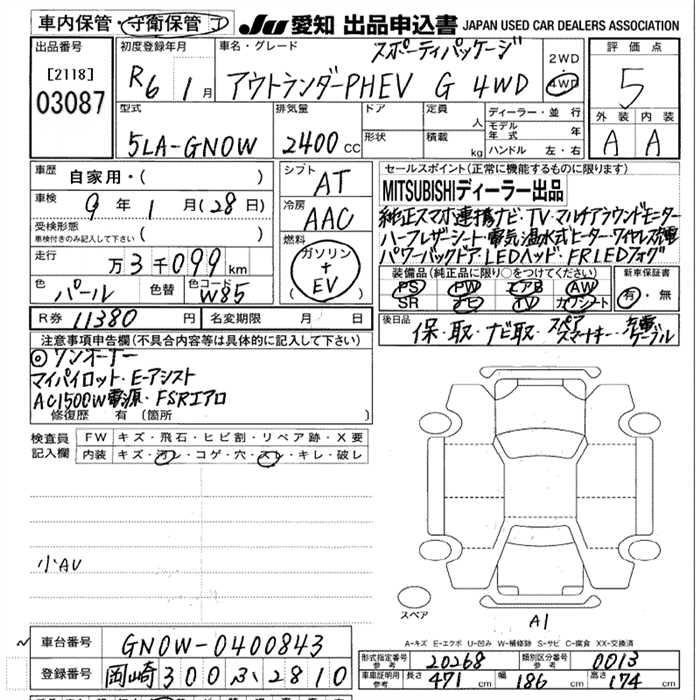 車内保管・守衛保管 1
JU 愛知 出品申込書 JAPAN USED CAR DEALERS ASSOCIATION
出品番号
[2118]
03087
初度登録年月
R6 1月
車名・グレード
スポーティパッケージ
アウトランダーPHEV G 4WD
2WD
4WD
評価点
5
外装 内装
A A
型式
5LA-GN0W
排気量
2400 cc
ドア
形状
定員
人
積載
kg
ディーラー・並行
モデル年式 年
ハンドル 左・右
車歴
自家用・( )
車検
9年 1月(28日)
受検形態
車検付きのみ記入して下さい ( )
走行
万3千099km
色
パール
色替
色コード
W85
シフト
AT
冷房
AAC
燃料
ガソリン
+
EV
( )
セールスポイント(正常に機能するものに限ります)
MITSUBISHIディーラー出品
純正スマホ連携ナビ・TV・マルチアラウンドモニター
ハーフレザーシート・電気温水式ヒーター・ワイヤレス充電
パワーバックドア・LEDヘッド・FRLEDフォグ
装備品(純正品に限り○をつけてください)
PS PW エアB AW
SR ナビ TV カワシート
新車保証書
有・無
R券 11380円
名変期限 月 日
後日品
保・取・ナビ取・スペアスマートキー・充電ケーブル
注意事項申告欄(不具合内容等は具体的に記入して下さい)
◎ワンオーナー
マイパイロット・E-アシスト
AC1500W電源・FSRエアロ
修復歴 有(箇所
検査員記入欄
FW キズ・飛石・ヒビ割・リペア跡・X要
内装 キズ・汚レ・コゲ・穴・スレ・キレ・破レ
小AU
スペア
A1
A-キズ E-エクボ U-凹み W-補修跡 S-サビ C-腐食 XX-交換済
車台番号 GN0W-0400843
登録番号 岡崎 300 ふ 2810
形式指定番号 参考 20268
類別区分番号 参考 0013
車庫証明用 参考 長さ 471cm 幅 186cm 高さ 174cm